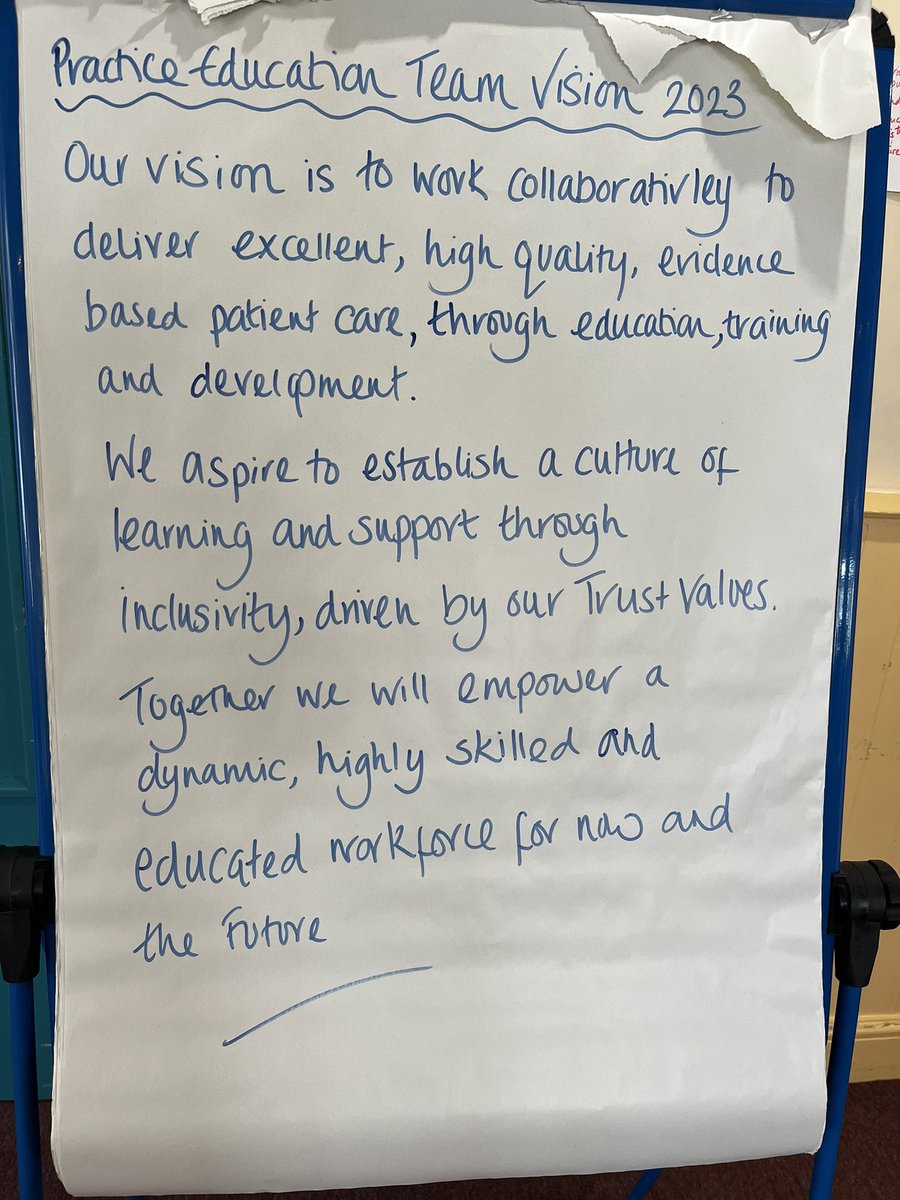 Practice Education Team Vision 2023
Our vision is to work collaborativley to
deliver excellent, high quality, evidence
based patient care, through education, training
and development.
We aspire to establish a culture of
learning and support through
inclusivity, driven by our Trust Values.
Together we will empower a
dynamic, highly skilled and
educated workforce for now and
the Future